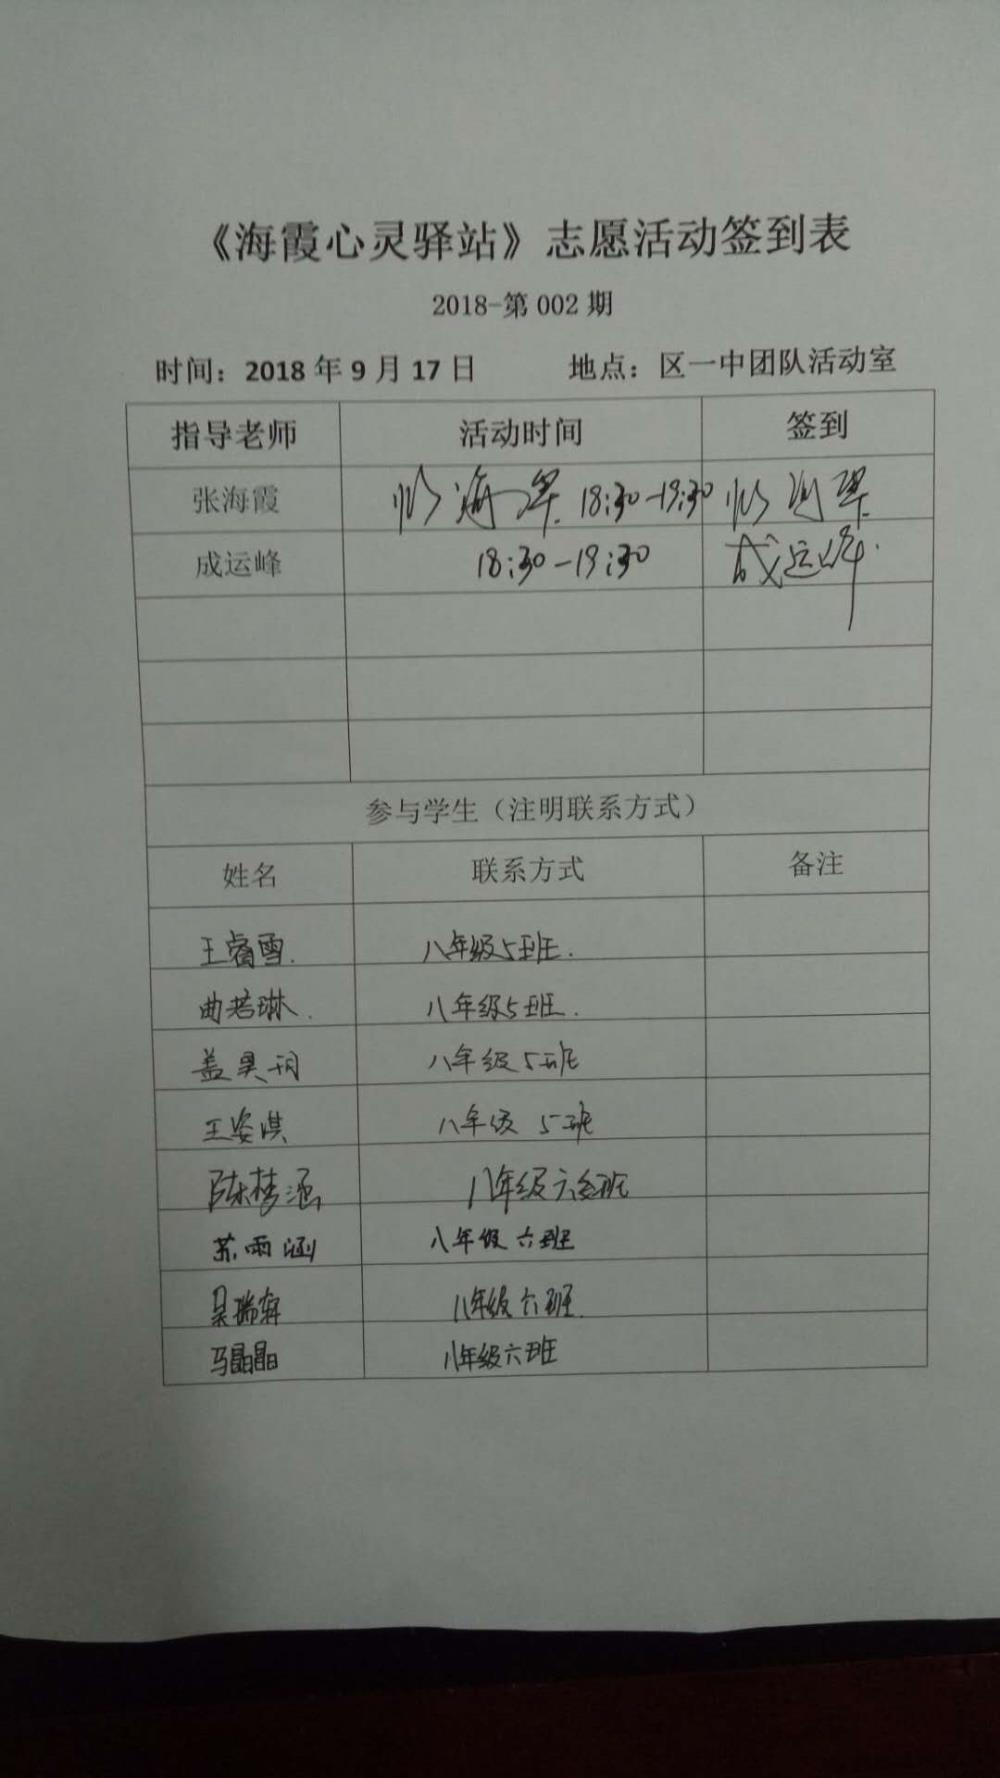 《海霞心灵驿站》志愿活动签到表
2018-第 002 期
时间：2018 年 9 月 17 日 地点：区一中团队活动室
指导老师 活动时间 签到
张海霞 张海霞 18:30-19:30 张海霞
成运峰 18:30-19:30 成运峰
参与学生（注明联系方式）
姓名 联系方式 备注
王睿雪. 八年级5班.
曲若琳. 八年级5班.
盖昊玥 八年级5班
王姿淇 八年级 5班
陈梦涵 八年级六班
苏雨涵 八年级六班
吴瑞轩 八年级六班.
马晶晶 八年级六班